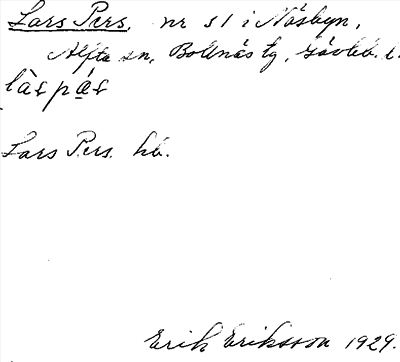 Lars Pers, nr 51 i Näsbyn,
Alfta sn, Bollnäs tg, Gävleb. l.
làspás
Lars Pers hb.
Erik Eriksson 1929.